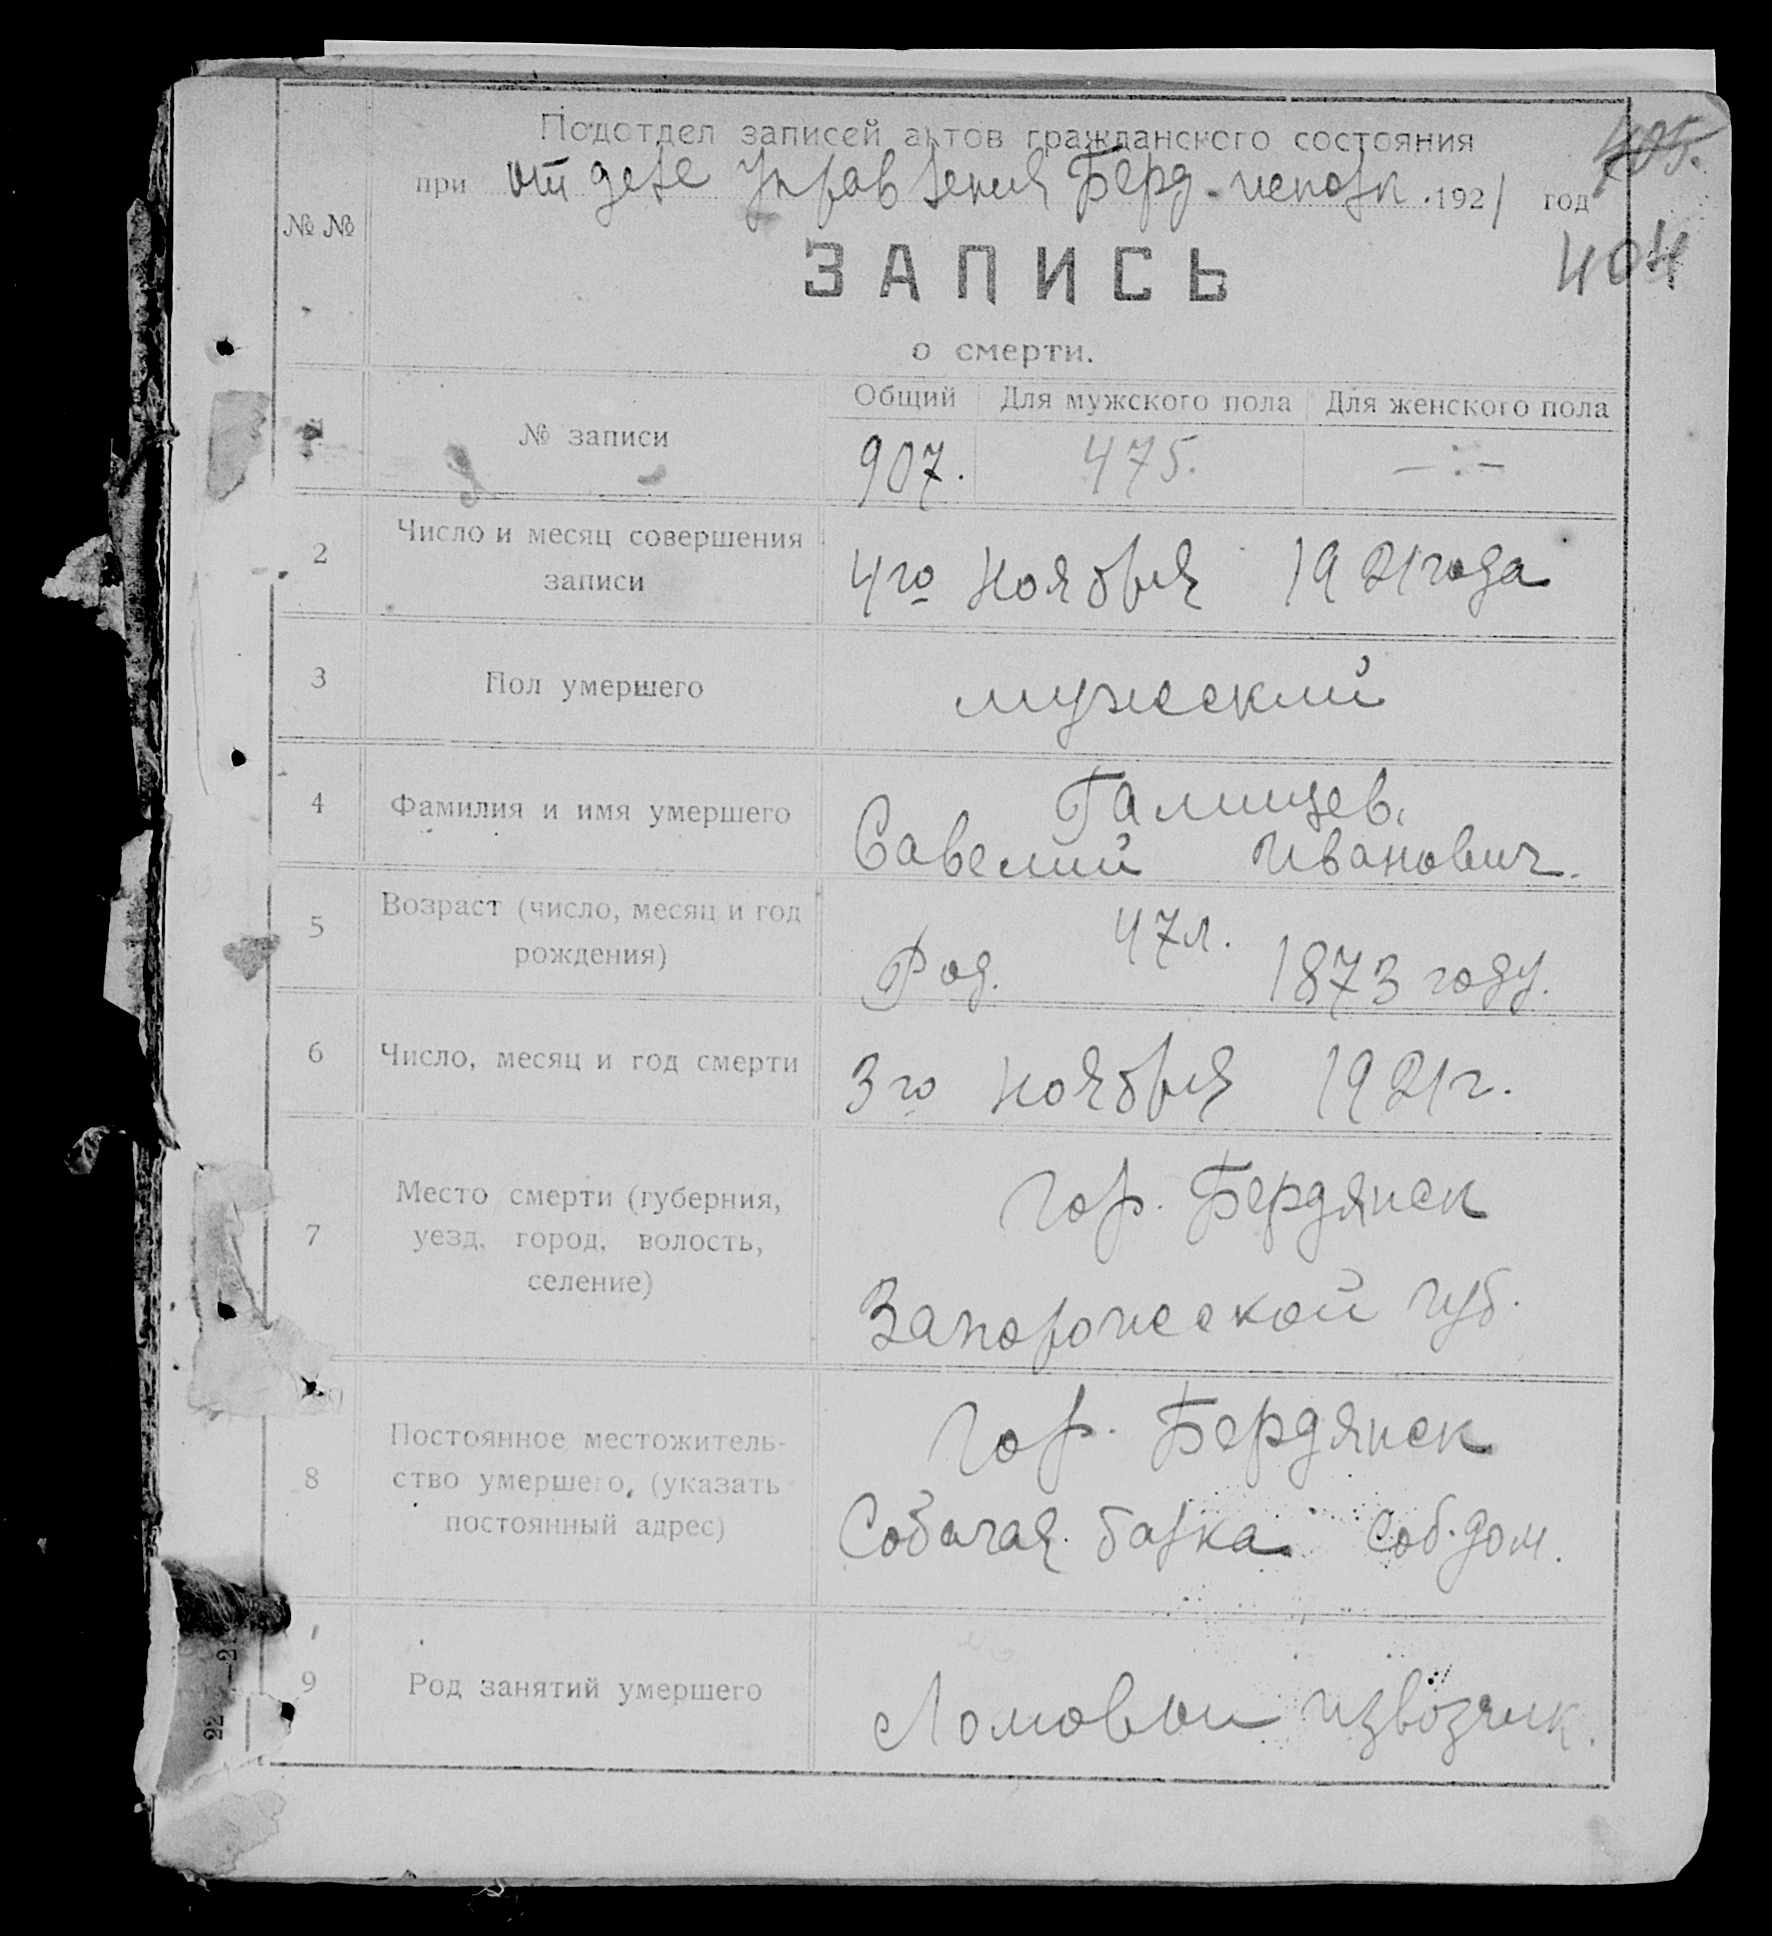 Подотдел записей актов гражданского состояния
405.
при отделе Управления Берд-исполк. 1921 год
№ №
404
ЗАПИСЬ
о смерти.
Общий Для мужского пола Для женского пола
№ записи 907. 475. —:—
2 Число и месяц совершения
записи 4го Ноября 1921 года
3 Пол умершего мужеский
4 Фамилия и имя умершего Галищев.
Савелий Иванович.
5 Возраст (число, месяц и год
рождения) 47л.
Род. 1873 году.
6 Число, месяц и год смерти 3го Ноября 1921г.
7 Место смерти (губерния,
уезд, город, волость,
селение) Гор. Бердянск
Запорожеской губ.
8 Постоянное местожитель-
ство умершего, (указать
постоянный адрес) Гор. Бердянск
Собачая балка соб. дом.
9 Род занятий умершего Ломовои извозчик.